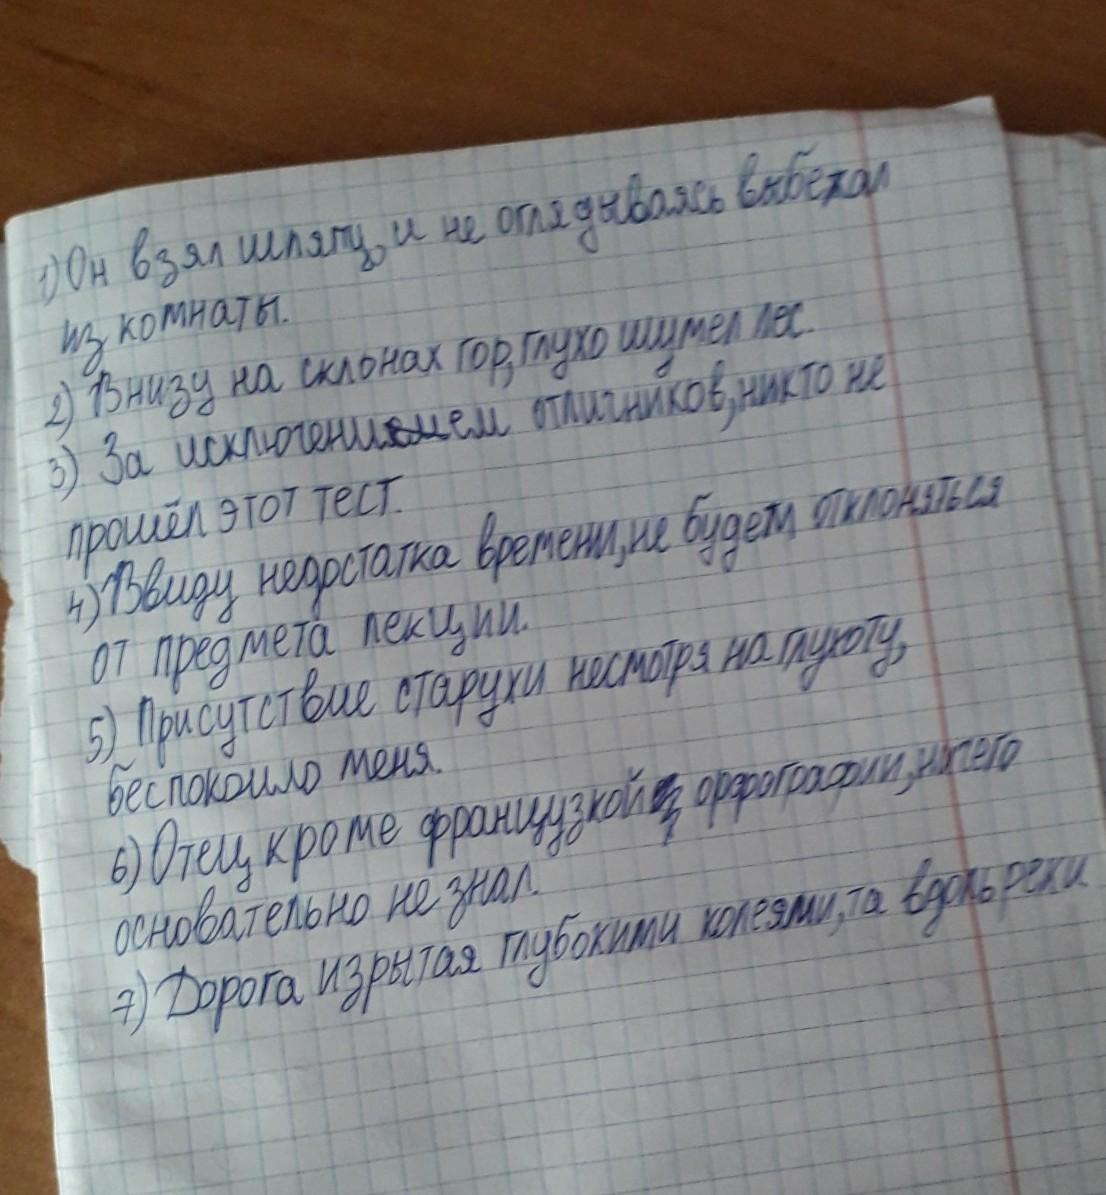 1) Он взял шляпу, и не оглядываясь выбежал
из комнаты.
2) Внизу на склонах гор, глухо шумел лес.
3) За исключением отличников, никто не
прошёл этот тест.
4) Ввиду недостатка времени, не будем отклоняться
от предмета лекции.
5) Присутствие старухи несмотря на глухоту,
беспокоило меня.
6) Отец кроме французкой орфографии, ничего
основательно не знал.
7) Дорога изрытая глубокими колеями, та вдоль реки